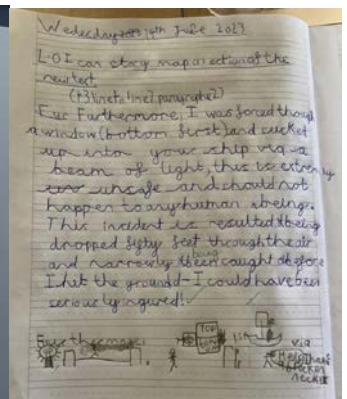 Wedesday 14th June 2023
L.O I can story map a section of the
new text
Fur Furthermore, I was forced though
a window (bottom first) and sucket
up into your ship via a
beam of light, this is extremly
unsafe and should not
happen to any human abeing.
This incident is resulted being
dropped fifty feet through the air
and narrowly being caught before
I hit the ground - I could have been
seriously ingured!
Furthermore,
TOP
1st
via